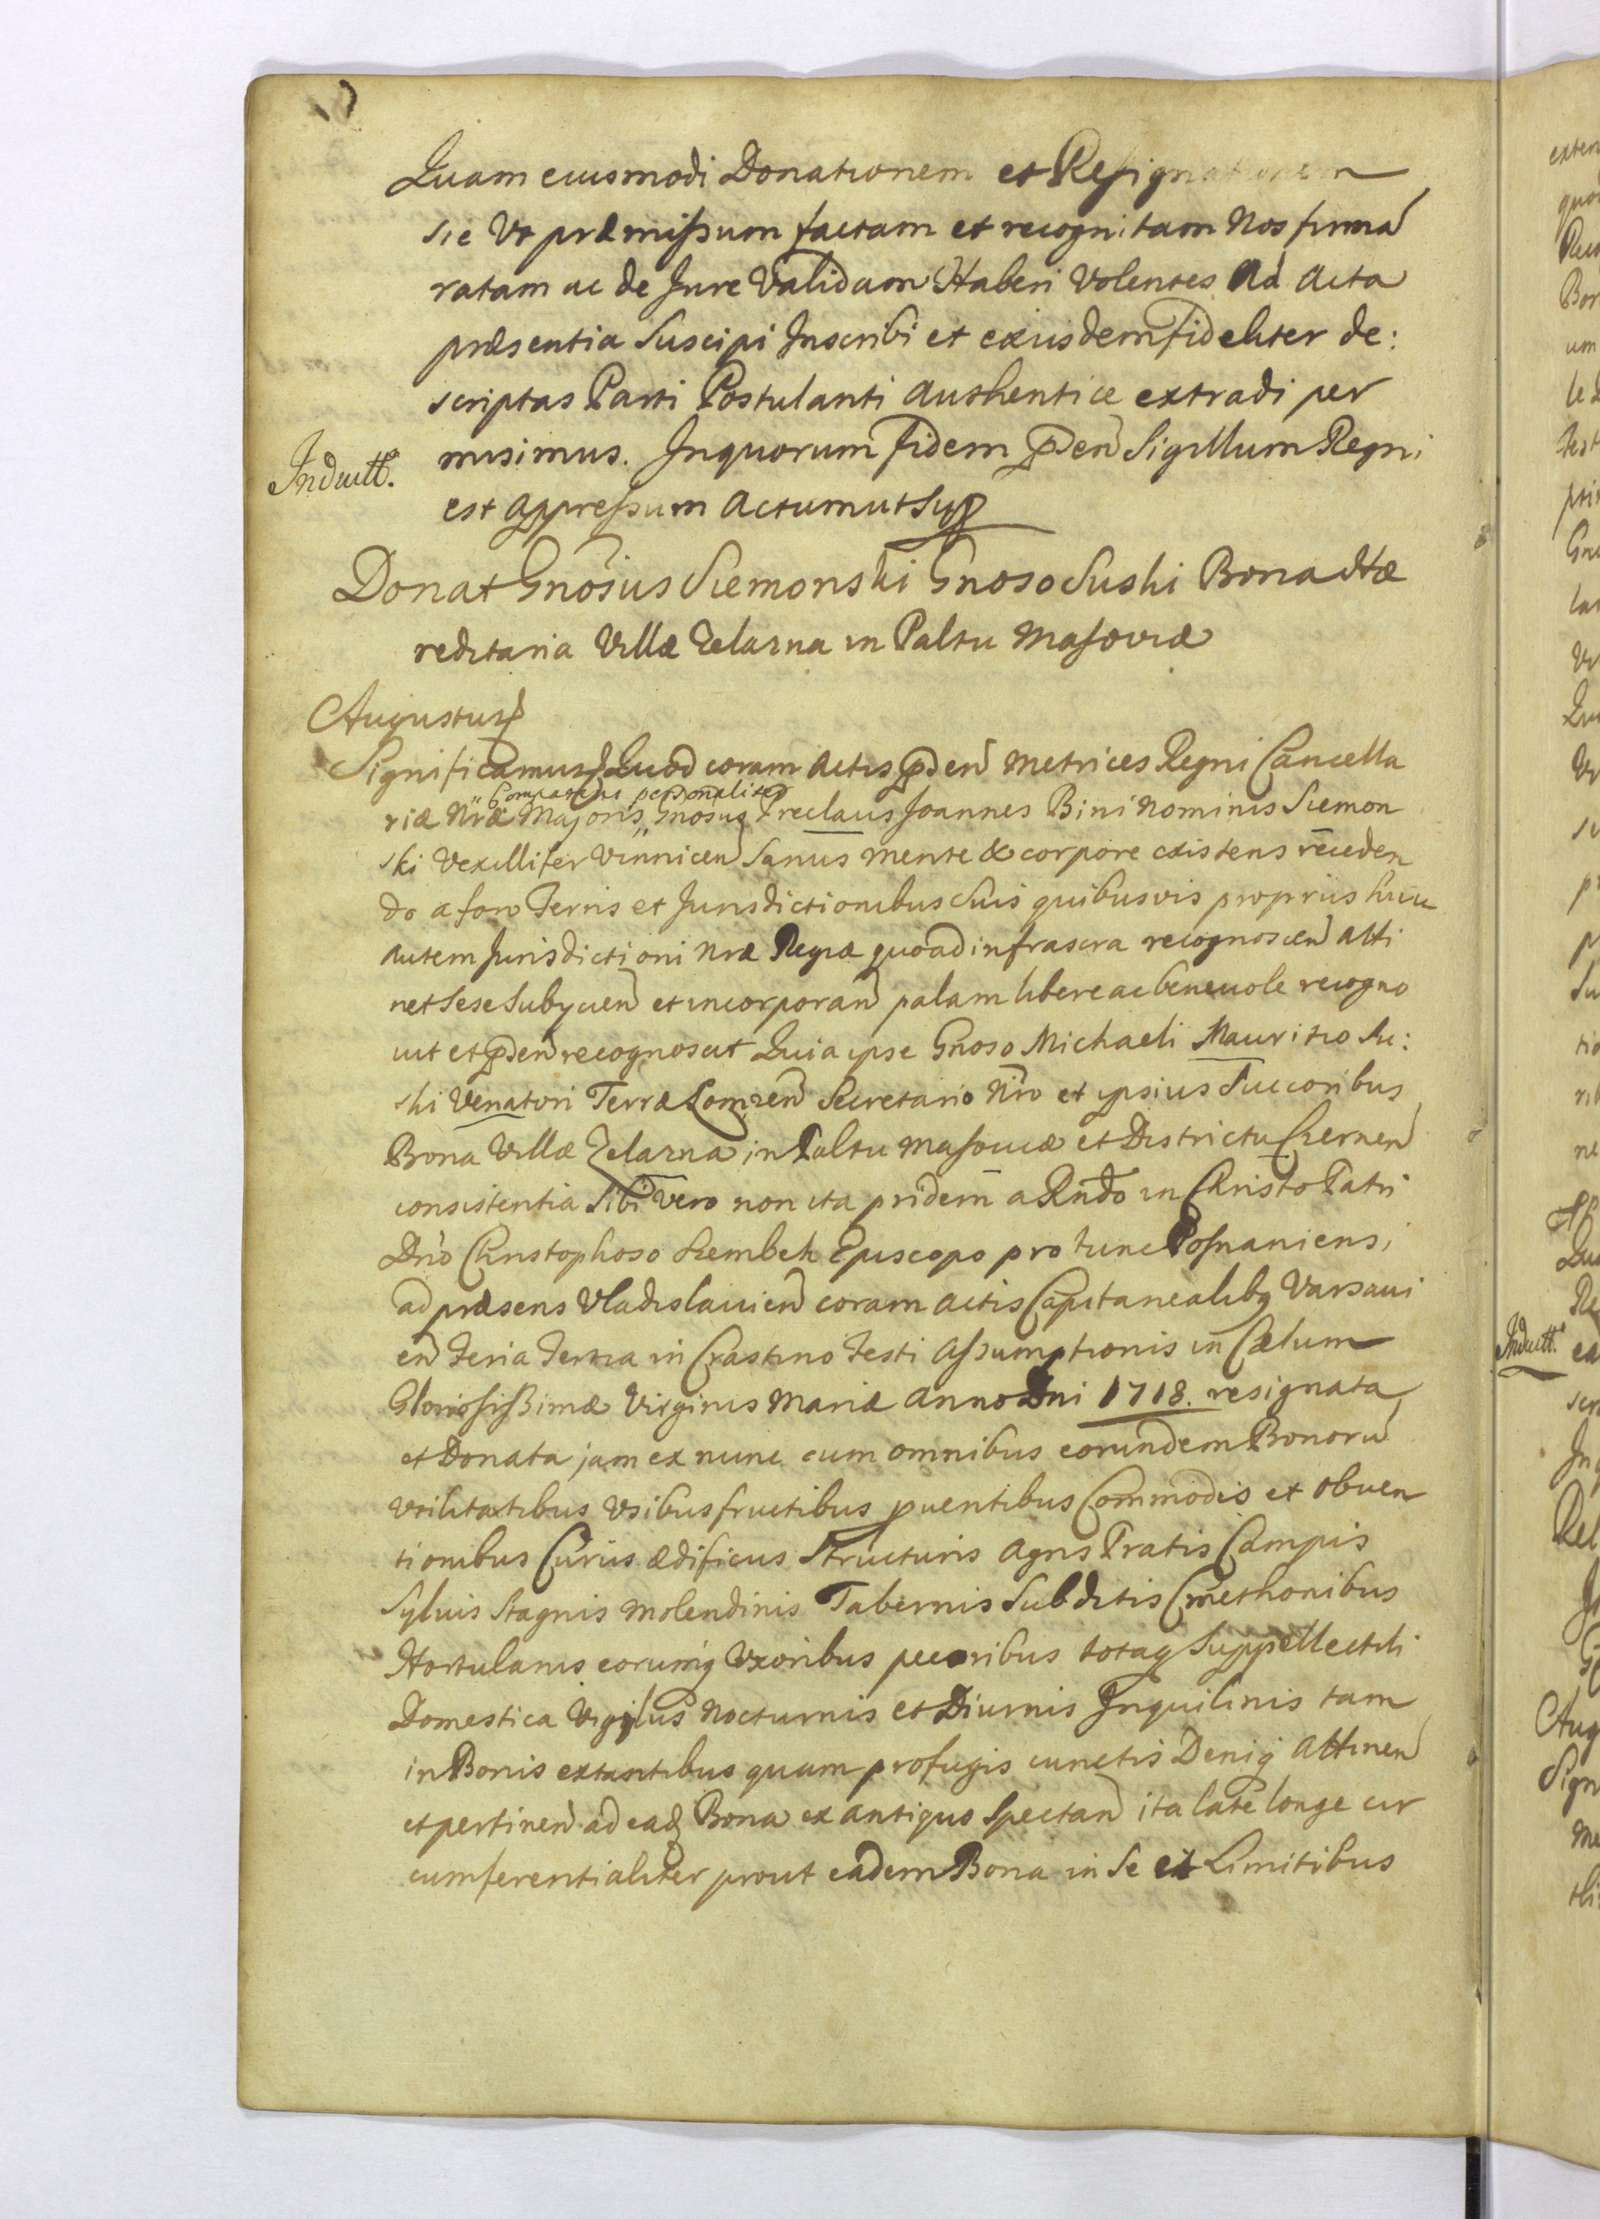 Quam eiusmodi Donationem et Resignationem
sic Vt præmissum factam et recognitam Nos firmã
ratam ac de Jure Validam Haberi Volentes Ad Acta
præsentia Suscipi Inscribi et exiisdem fideliter de:
scriptas Parti Postulanti authentice extradi per
Induxtt.
misimus. Inquorum fidem pñden Sigillum Regni
est appressum Actum ut Sup
Donat Gnosus Siemonski Gnoso Suski Bona Hæ
reditaria Villæ Zelazna in Paltu Masoviæ
Augustus
Significamus Quod coram actis pñden Metrices Regni Cancella
Comparens personaliter
riæ Nræ Majoris Gnosus Preclaus Joannes Bini Nominis Siemon
ski Vexillifer Vinnicen Sanus mente & corpore existens receden
do a foro Terris et Jurisdictionibus Suis quibusvis proprijs huic
autem Jurisdictioni nræ Regiæ quoad infrascra recognoscen atti
net Sese Subijcien et incorporan palam libere ac beneuole recogno
uit et pñden recognoscit Quia ipse Gnoso Michaeli Mauritio Su:
ski Venatori Terræ Lomzen Secretario Nro et ipsius Succoribus
Bona Villæ Zelazna in Paltu Masouiæ et Districtu Czernen
consistentia Sibi vero non ita pridem a Rndo in Christo Patri
Dno Christophoro Szembek Episcopo pro tunc Posnaniensi
ad præsens Vladislauien coram actis Capitanealibq Varsaui
en feria tertia in Crastino festi Assumptionis in Cælum
Gloriosissimæ Virginis Mariæ Anno Dni 1718. resignata
et Donata jam ex nunc cum omnibus eorundem Bonorũ
Vtilitatibus Vsibus fructibus puentibus Commodis et obuen
tionibus Curiis ædificiis Structuris Agris Pratis Campis
Syluis Stagnis Molendinis Tabernis Subditis Cmethonibus
Hortulanis eorumq Vxoribus pecoribus totaq Suppellectili
Domestica Vigiliis Nocturnis et Diurnis Inquilinis tam
in Bonis extantibus quam profugis cunctis Deniq Attinen
et pertinen ad ead Bona ex antiquo Spectan ita late longe cir
cumferentialiter prout eadem Bona in Se et Limitibus
Induxtt.